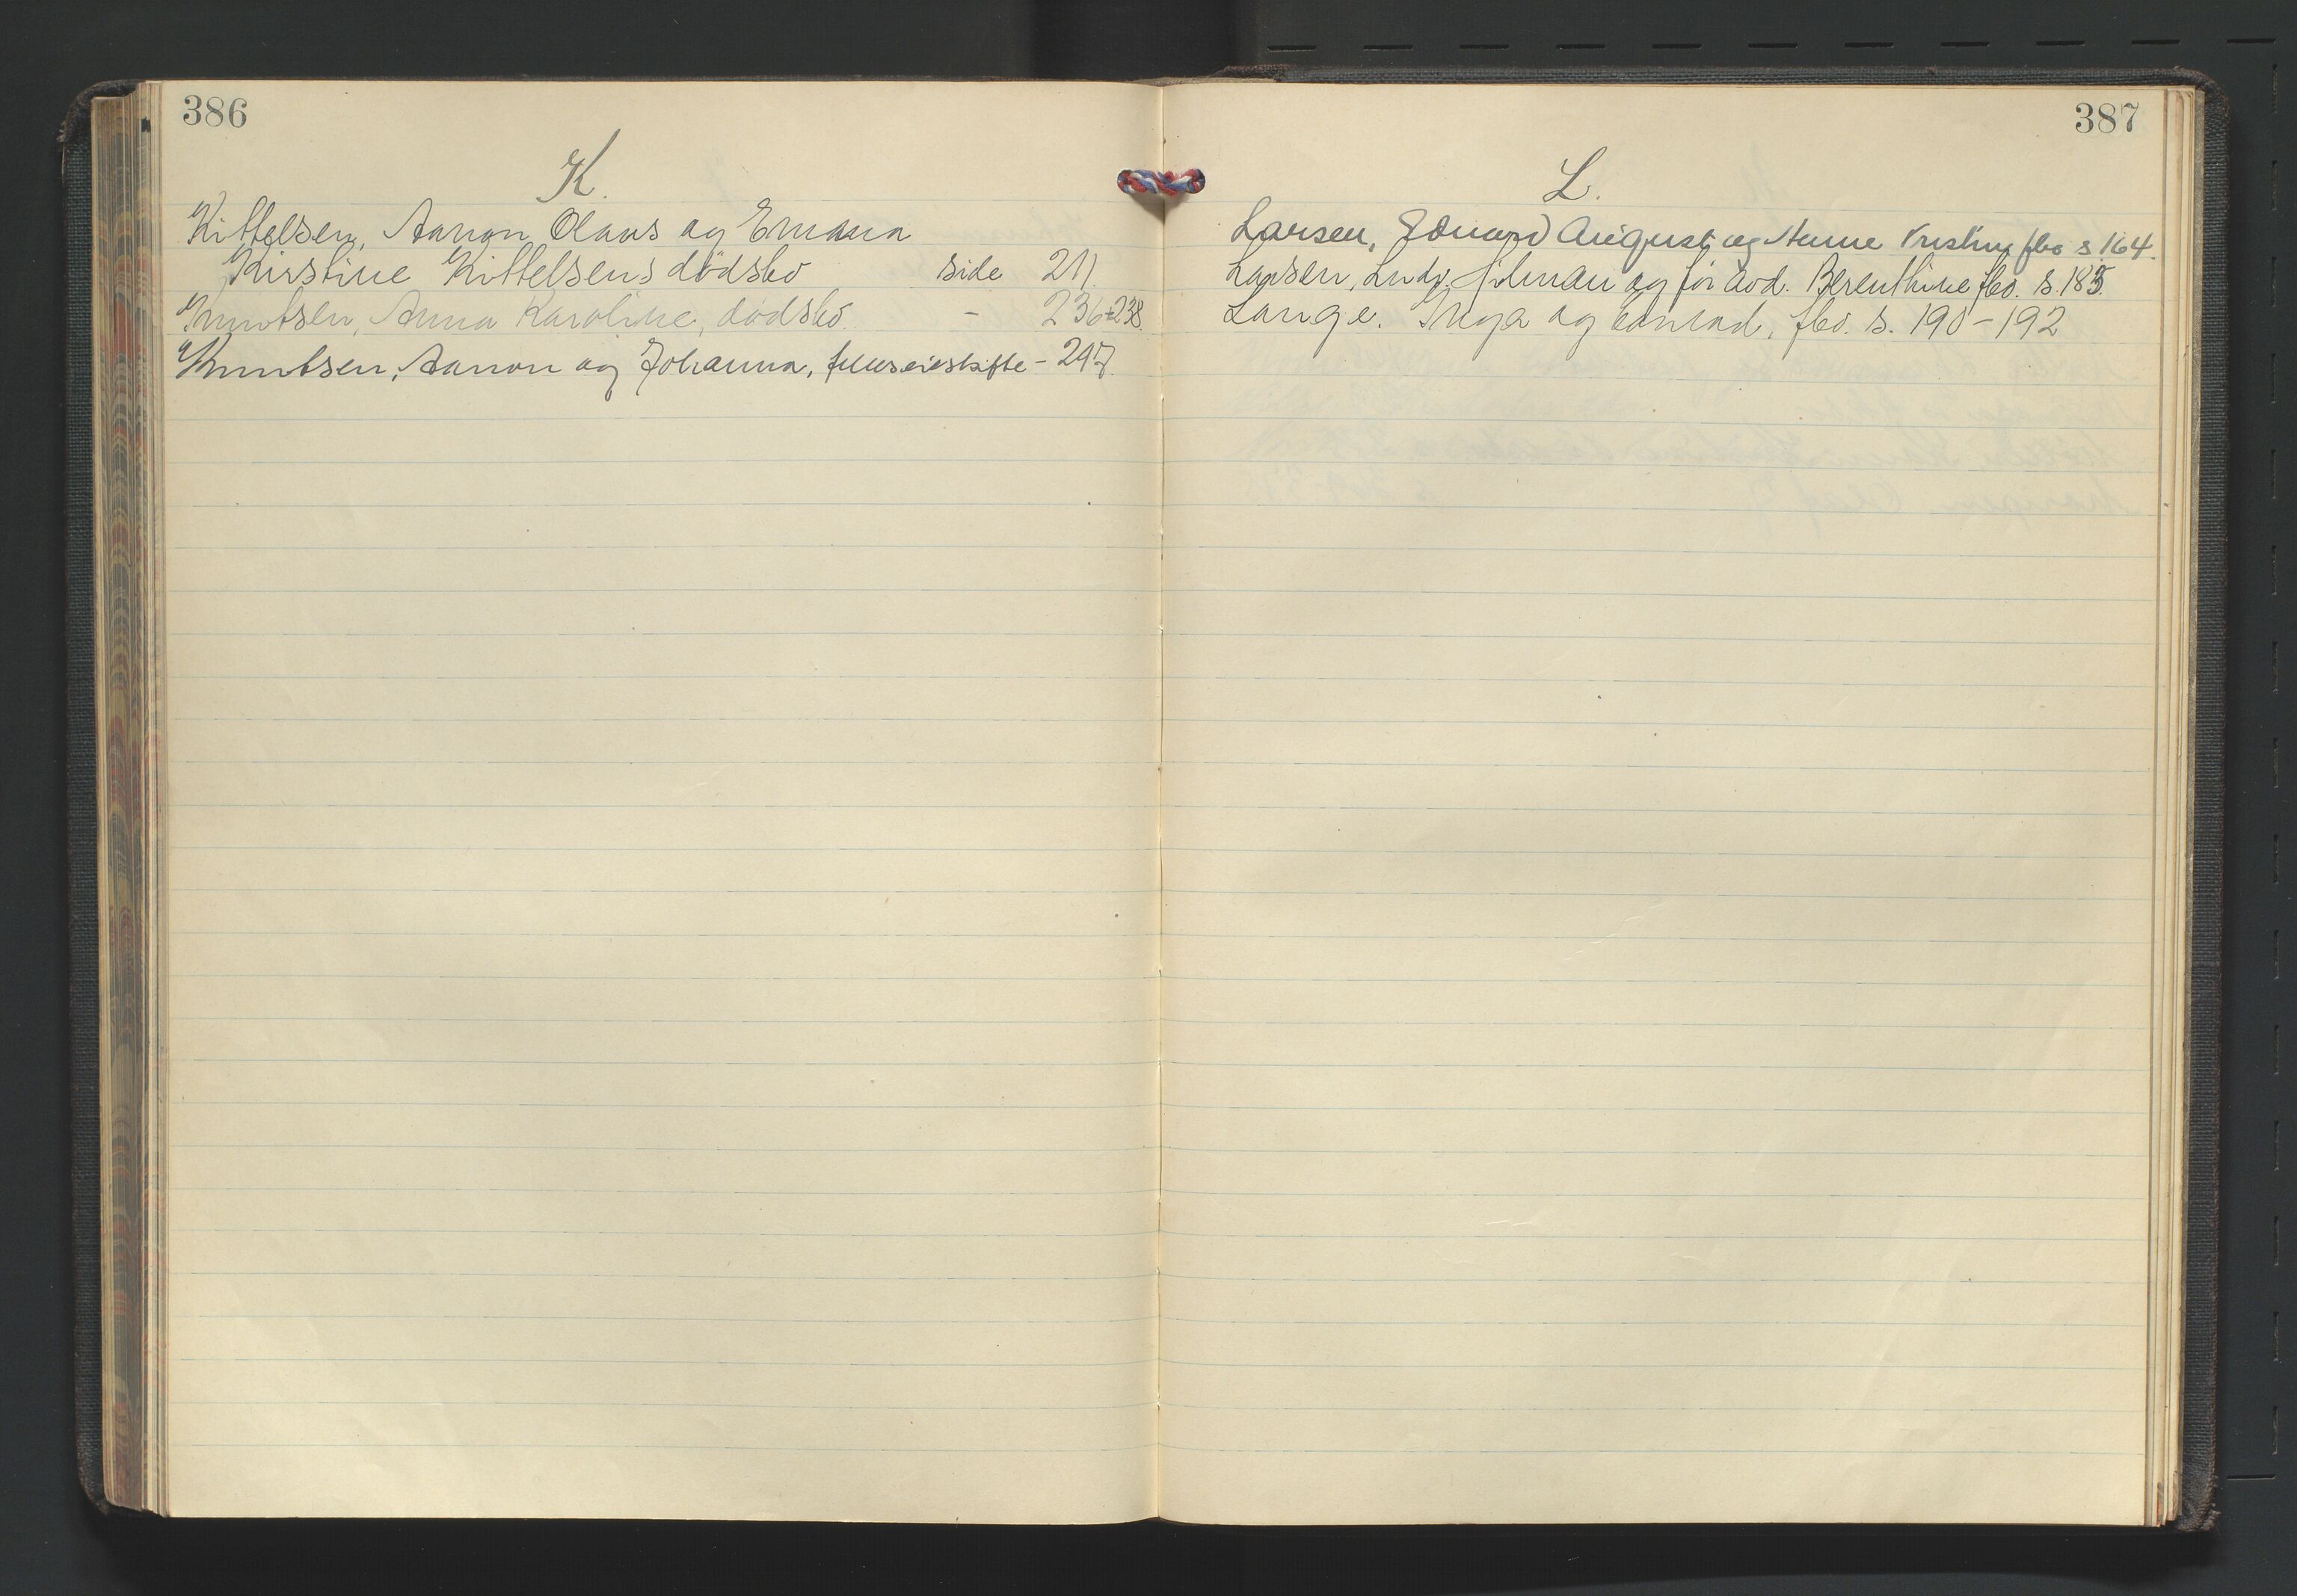 386
K.
Kittelsen, Aanon Olaus og Emma
Kirstine Kittelsens dödsbo side 211.
Knutsen, Anna Karoline, dödsbo. - 236-238.
Knutsen, Aanon og Johanna, felleseieskifte - 297.
387
L.
Larsen, Edvard August og Anne Kristine fbo s. 164.
Larsen, Ludv. Hilmau og før død. Berenthine fbo. s. 185.
Lange. Inga og Conrad, fbo. s. 190-192